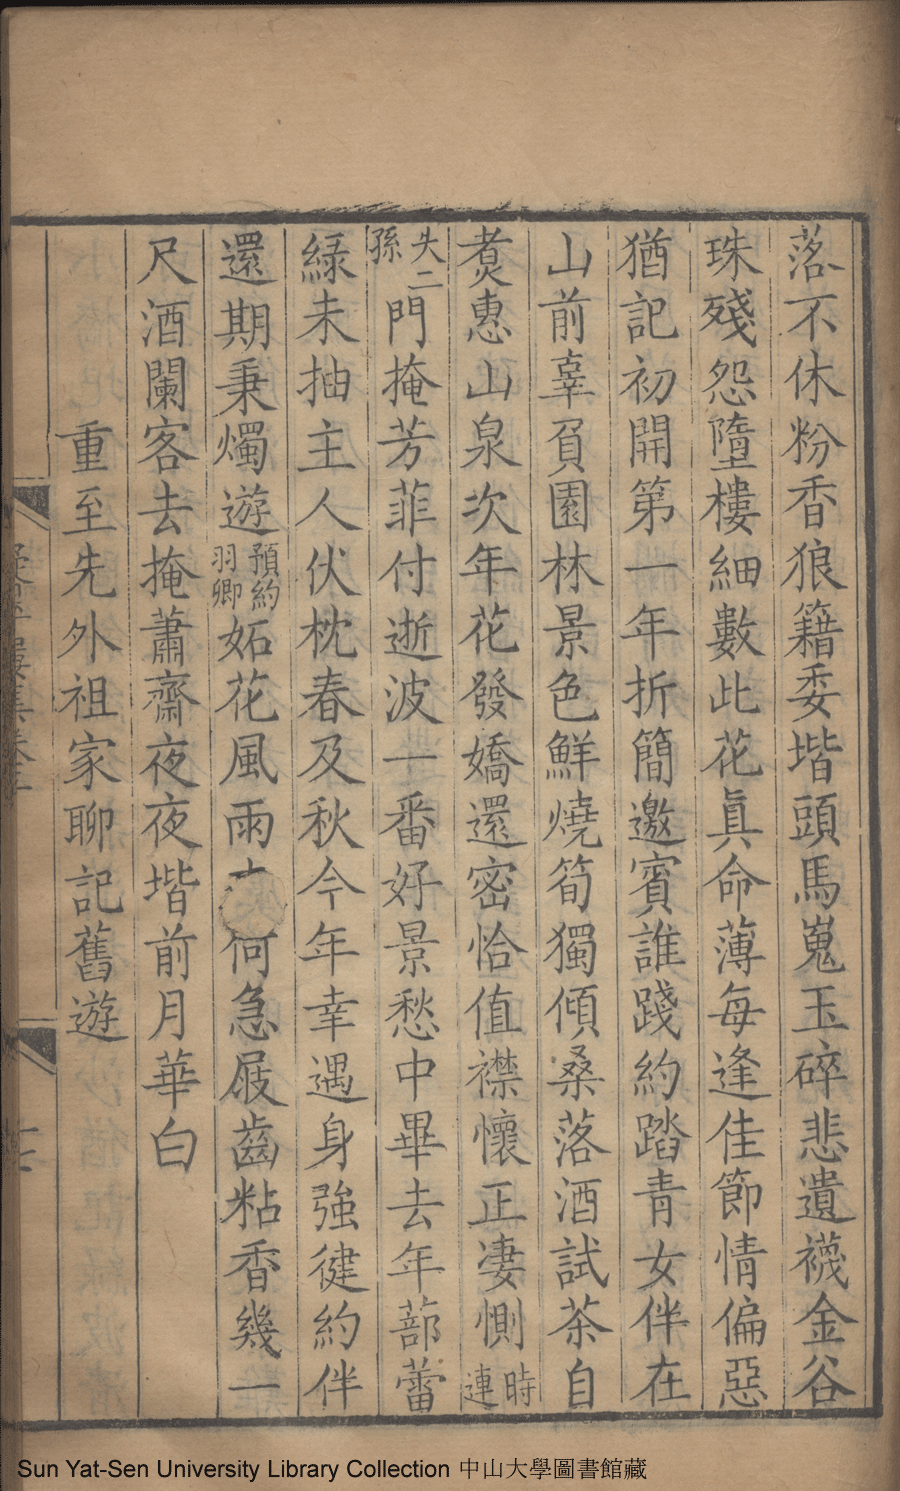 落不休粉香狼籍委堦頭馬嵬玉碎悲遺襪金谷
珠殘怨墮樓細數此花眞命薄每逢佳節情偏惡
猶記初開第一年折簡邀賓誰踐約踏青女伴在
山前辜負園林景色鮮燒筍獨傾桑落酒試茶自
煑惠山泉次年花發嬌還密恰值襟懷正凄惻時連
失二孫門掩芳菲付逝波一番好景愁中畢去年蔀蕾
綠未抽主人伏枕春及秋今年幸遇身強健約伴
還期秉燭遊預約羽卿妬花風雨何急屐齒粘香幾一
尺酒闌客去掩蕭齋夜夜堦前月華白
重至先外祖家聊記舊遊
Sun Yat-Sen University Library Collection 中山大學圖書館藏